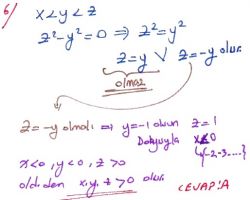 6/
x < y < z
z² - y² = 0 ⇒ z² = y²
z = y ∨ z = -y olur
olmaz
z = -y olmalı ⇒ y = -1 olsun z = 1
Dolayısıyla x < 0
{-2, -3, ....}
x < 0, y < 0, z > 0
olduğundan x.y.z > 0 olur.
CEVAP: A